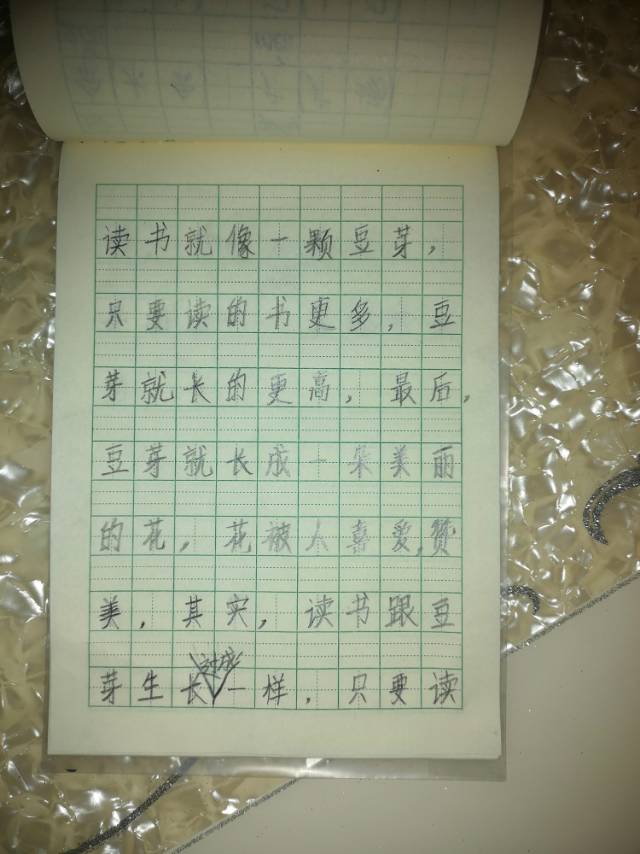 读书就像一颗豆芽，
只要读的书更多，豆
芽就长的更高，最后，
豆芽就长成一朵美丽
的花，花被人喜爱，赞
美，其实，读书跟豆
芽生长一样，只要读